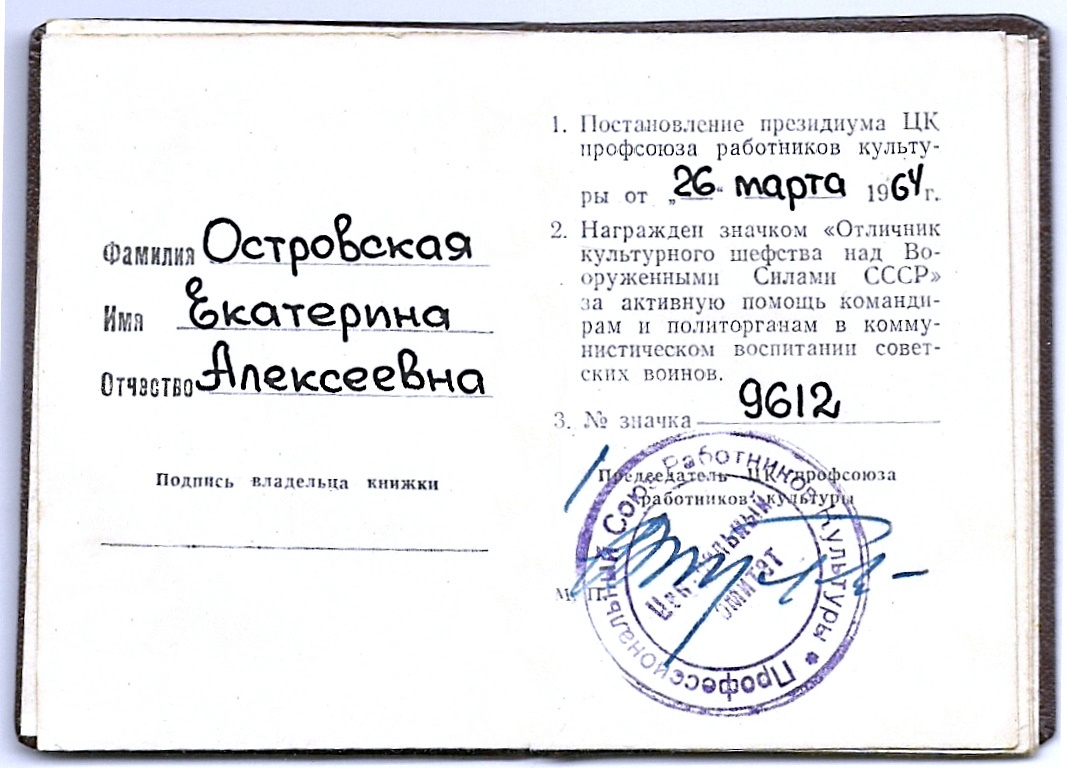 Фамилия Островская
Имя Екатерина
Отчество Алексеевна
Подпись владельца книжки
1. Постановление президиума ЦК
профсоюза работников культу-
ры от „26“ марта 1964 г.
2. Награжден значком «Отличник
культурного шефства над Во-
оруженными Силами СССР»
за активную помощь команди-
рам и политорганам в комму-
нистическом воспитании совет-
ских воинов.
3. № значка 9612
Председатель ЦК профсоюза
работников культуры
М. П.
Профессиональный Союз Работников Культуры
Центральный
Комитет